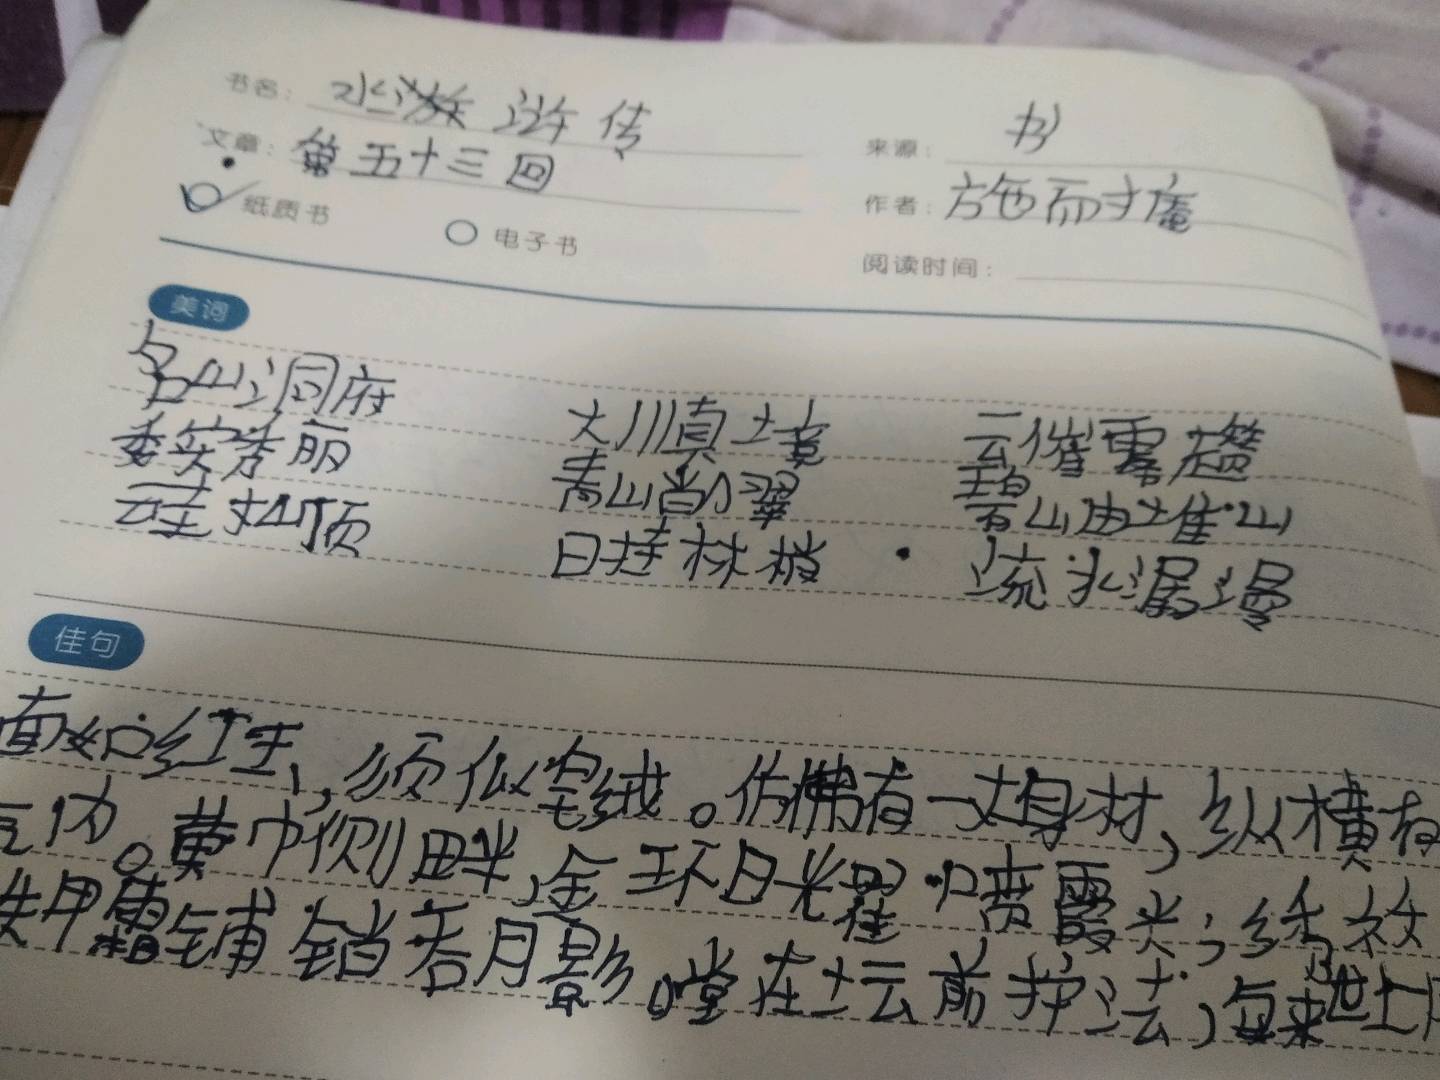 书名： 水浒传
来源： 书
文章： 第五十三回
作者： 施耐庵
纸质书 电子书
阅读时间：
美词
名山洞府 大川真境 云催雾趱
委实秀丽 青山削翠 碧岫堆
云在山顶 日挂林梢 疏水潺湲
佳句
面如红玉，须似绒。仿佛有一丈身材，纵横有
。黄巾侧畔，金环日耀喷霞光；绣袄
铁甲霜铺吞月影。常在坛前护法，每来世上